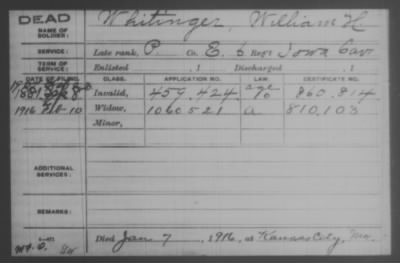 DEAD
NAME OF SOLDIER:
Whitinger, William H.
SERVICE:
Late rank, P. Co. E, 6 Reg't Iowa Cav
TERM OF SERVICE:
Enlisted , 1 Discharged , 1
DATE OF FILING. CLASS. APPLICATION NO. LAW. CERTIFICATE NO.
Invalid, 457.424 860.814
1916 Feb 10 Widow, 1060521 a 810,103
Minor,
ADDITIONAL SERVICES:
REMARKS:
Died Jan 7, 1916, at Kansas City, Mo.